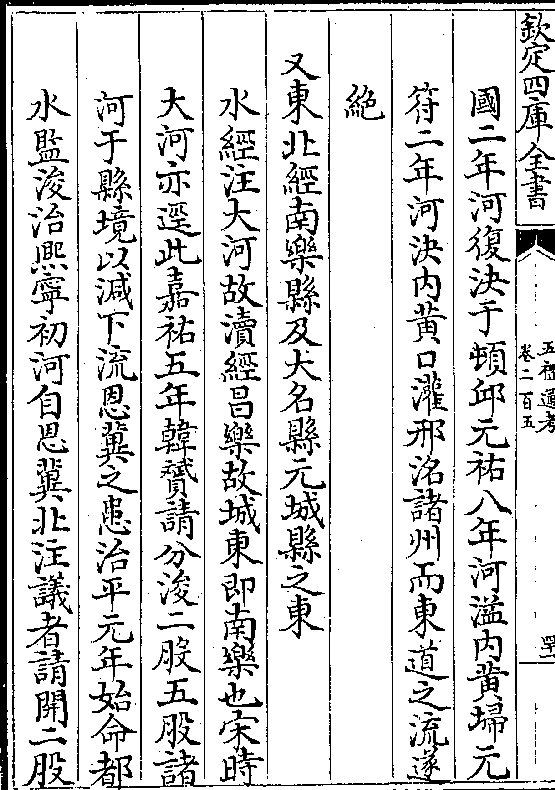 欽定四庫全書
五禮通考
卷二百五
國二年河復決于頓邱元祐八年河溢内黄埽元
符二年河決内黄口灌邢洺諸州而東道之流遂
絶
又東北經南樂縣及大名縣元城縣之東
水經注大河故瀆經昌樂故城東即南樂也宋時
大河亦逕此嘉祐五年韓贄請分浚二股五股諸
河于縣境以減下流恩冀之患治平元年始命都
水監浚治熈寧初河自恩冀北注議者請開二股